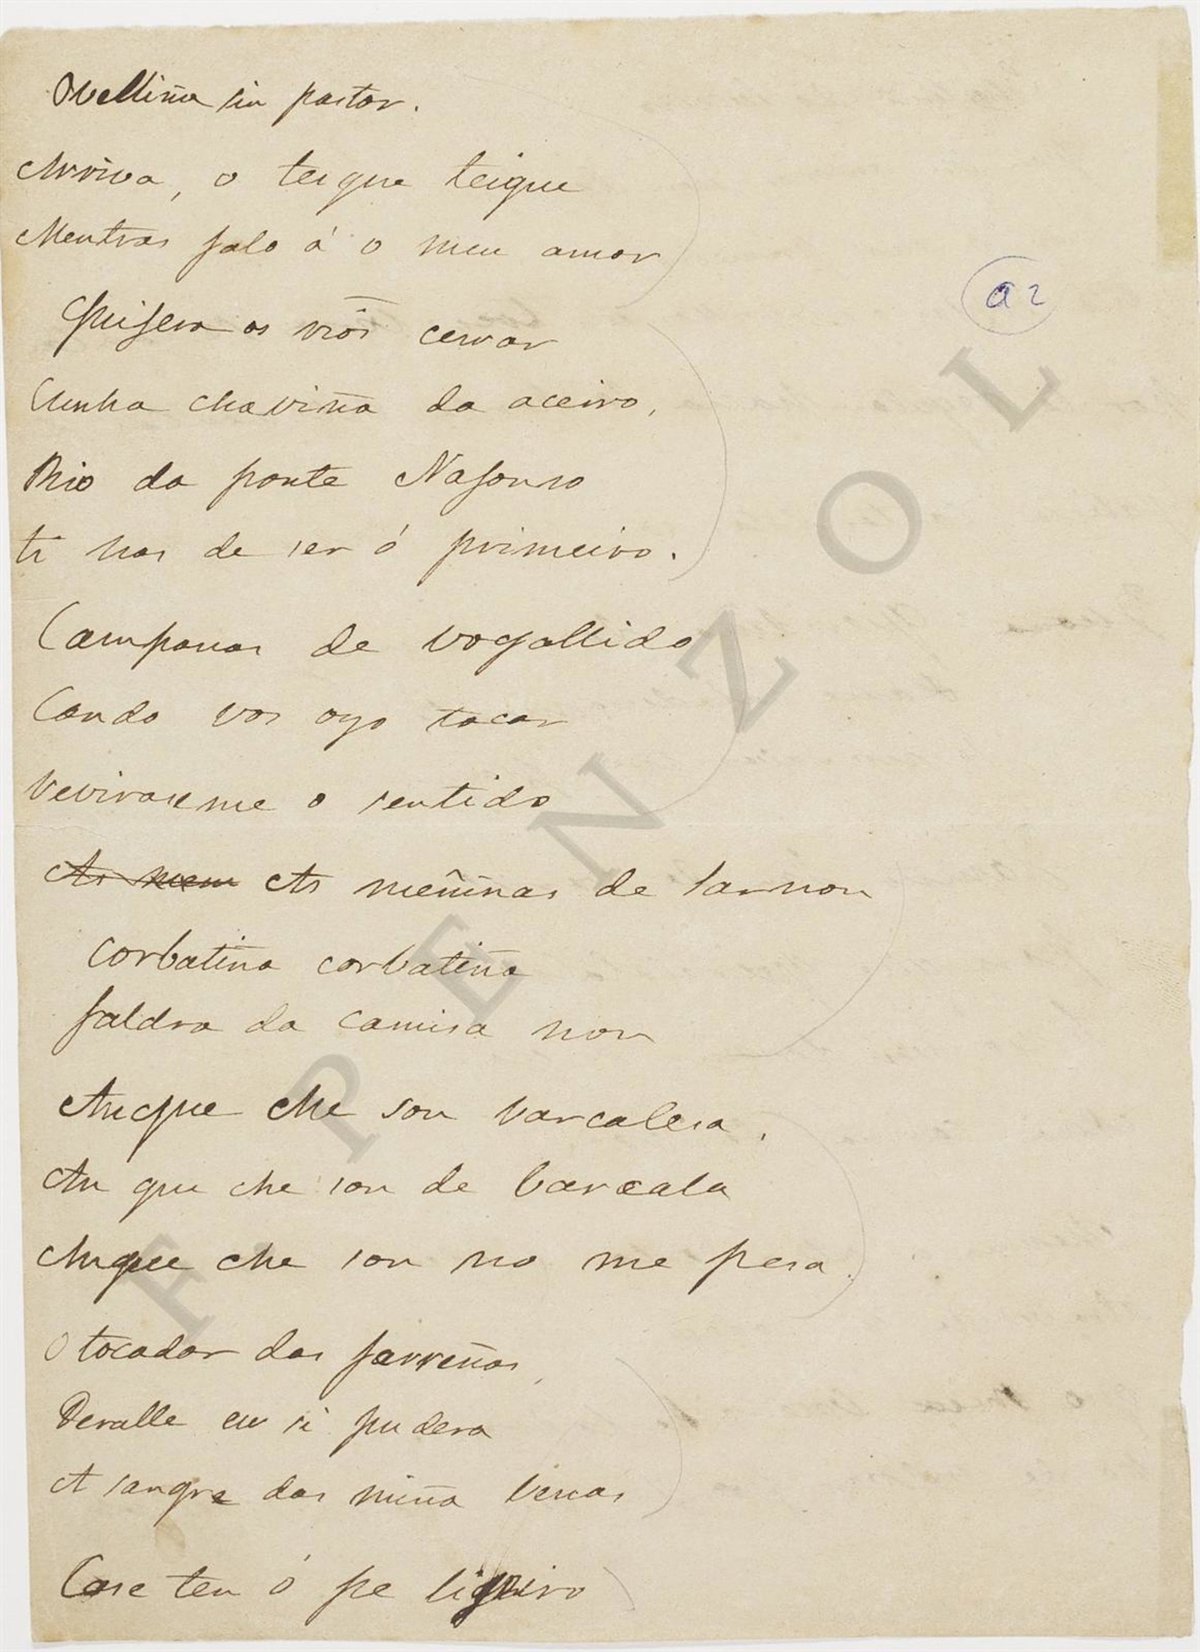 Ovelliña sin pastor.
Arriva, o teique teique
Mentras falo á o meu amor
Quifera os rios cerrar
Cunha chaviña da aceiro,
Rio da ponte Nafonso
ti has de ser ó primeiro.
Campanas de vogallido
Cando vos oyo tocar
o sentido
As As meniñas de Sarnon
corbatiña corbatiña
faldra da camisa non
Auque che son varcalesa,
An que che son de barcala
Auque che son no me pesa.
O tocador das ferreñas,
Deralle eu si pudera
A sangre das miña venas
Case ten ó pe ligeiro
a2
F. PENZOL